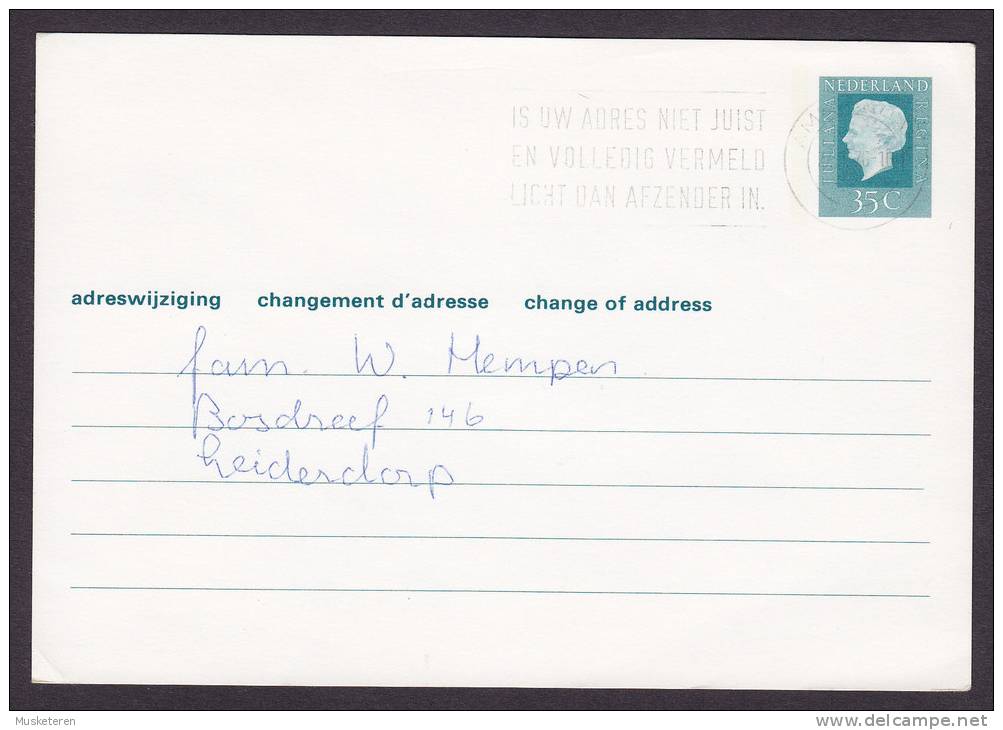 IS UW ADRES NIET JUIST
EN VOLLEDIG VERMELD
LICHT DAN AFZENDER IN.
NEDERLAND
JULIANA REGINA
35 C
adreswijziging changement d'adresse change of address
fam. W. Mempen
Bosdreef 146
Leiderdorp
Musketeren
www.delcampe.net